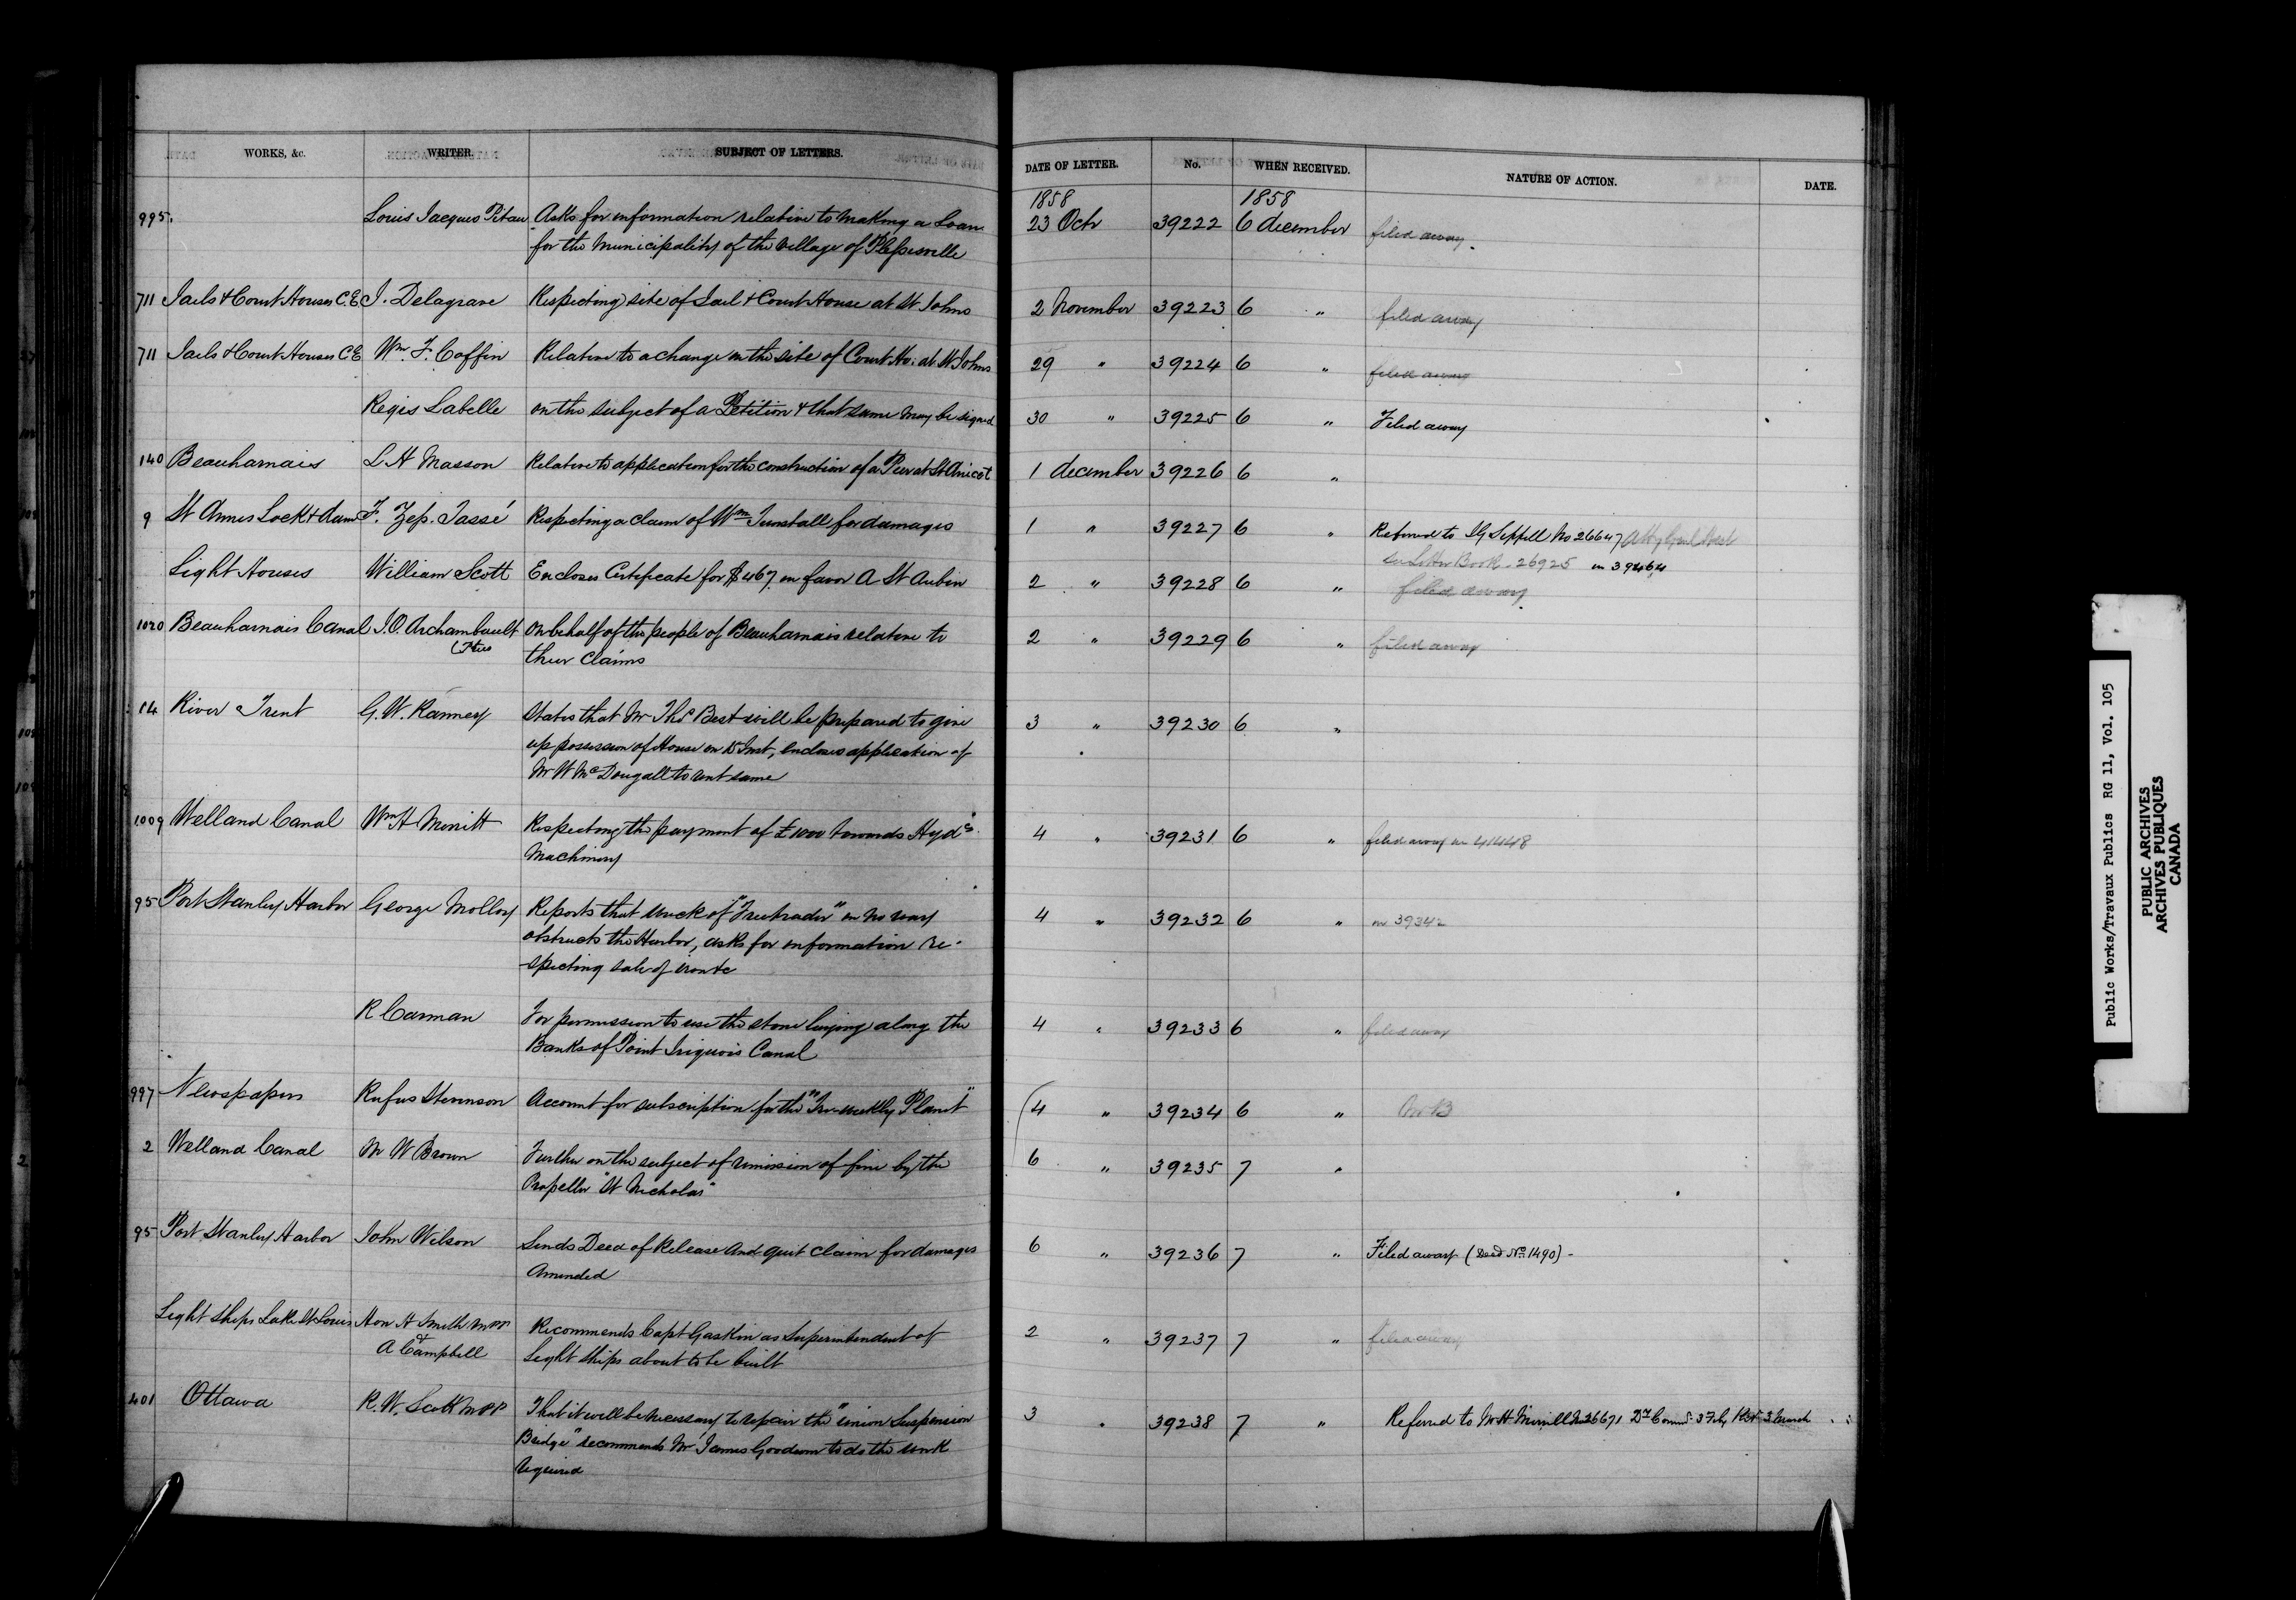 WORKS, &c. WRITER. SUBJECT OF LETTERS. DATE OF LETTER. No. WHEN RECEIVED. NATURE OF ACTION. DATE.
1858 1858
995. Louis Jacques Pitau Asks for information relative to making a Loan 23 Octr 39222 6 december filed away.
for the Municipality of the Village of Plessisville
711 Jails & Court Houses C.E J. Delagrave Respecting site of Jail & Court House at St Johns 2 November 39223 6 " filed away
711 Jails & Court Houses C.E Wm. F. Coffin Relative to a change in the site of Court Ho: at St Johns 29 " 39224 6 " filed away
Regis Labelle on the subject of a Petition & that same may be signed 30 " 39225 6 " Filed away
140 Beauharnais L H Masson Relative to application for the construction of a Pier at St Anicet 1 december 39226 6 "
9 St Annes Lock & dam F. Zep. Tassé Respecting a claim of Wm Tunstall for damages 1 " 39227 6 " Referred to No 26647
Letter Book. 26925 in 39464
Light Houses William Scott Encloses Certificate for $467 in favor A St Aubin 2 " 39228 6 " filed away.
1020 Beauharnais Canal J.O. Archambault On behalf of the people of Beauharnais relative to 2 " 39229 6 " filed away
their claims
14 River Trent G. W. Ranney States that Mr Thos Best will be prepared to give 3 " 39230 6 "
up possession of House on Inst, encloses application of
Mr W McDougall to rent same
1009 Welland Canal Wm H Merritt Respecting the payment of £1000 towards Hydc. 4 " 39231 6 " filed away in 41448
Machinery
95 Port Stanley Harbor George Molloy Reports that wreck of "Freetrader" in no way 4 " 39232 6 " in 39342
obstructs the Harbor, asks for information re-
-specting sale of iron &c
R Carman For permission to use the stone lying along the 4 " 39233 6 " filed away
Banks of Point Iriquois Canal
997 Newspapers Rufus Stevenson Account for subscription for the "Tri-weekly Planet" 4 " 39234 6 "
2 Welland Canal M W Brown Further on the subject of remission of fine by the 6 " 39235 7 "
Propellor "St Nicholas"
95 Port Stanley Harbor John Wilson Sends Deed of Release and quit claim for damages 6 " 39236 7 " Filed away (Deed No. 1490) -
Amended
Light Ships Lake St Louis Hon H Smith MPP Recommends Capt Gaskin as Superintendent of 2 " 39237 7 " filed away
& A Campbell Light Ships about to be built
401 Ottawa R. W. Scott MPP That it will be necessary to repair the "Union Suspension 3 " 39238 7 " Referred to Mr H Merrill No 26671 3 Feby 3 March
Bridge" recommends Mr James Goodwin to do the work
required
Public Works/Travaux Publics RG 11, Vol. 105
PUBLIC ARCHIVES
ARCHIVES PUBLIQUES
CANADA